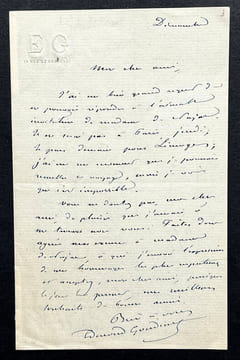 EG
Dimanche
Mon cher ami,
J'ai un bien grand regret de
ne pouvoir répondre à l'aimable
invitation de madame de
Je ne serai pas à Paris, jeudi,
je pars demain pour Limoges,
j'ai eu un moment que je pourrais
remettre ce voyage, mais je vois
que c'est impossible.
Vous ne doutez pas, mon cher
ami du plaisir que j'aurais à
me trouver avec vous. Faites donc
agréer mes excuses à madame
de, à que j'envoie l'expression
de mes hommages les plus respectueux
et, mon cher ami,
la main et prenez mes meilleurs
souhaits de bonne année
Bien à vous
Edmond Gondinet